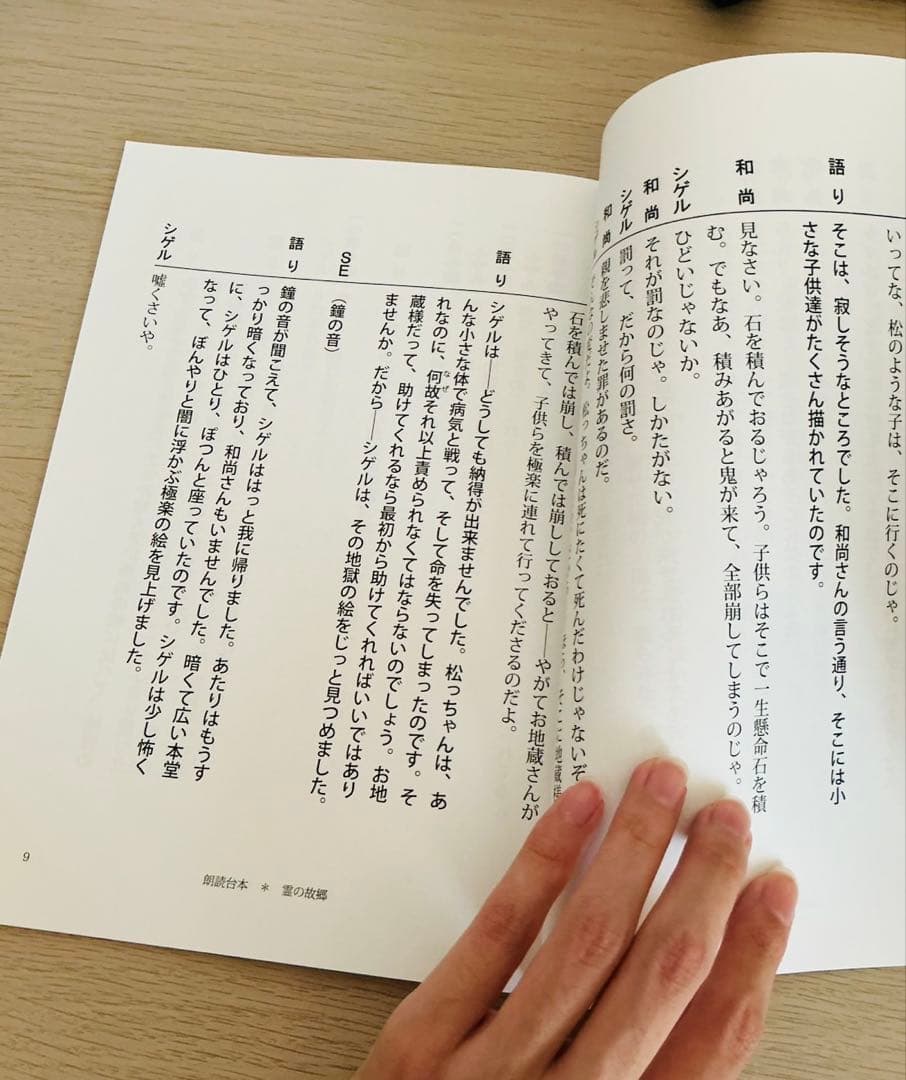 いってな、松のような子は、そこに行くのじゃ。
語り そこは、寂しそうなところでした。和尚さんの言う通り、そこには小
さな子供達がたくさん描かれていたのです。
和尚 見なさい。石を積んでおるじゃろう。子供らはそこで一生懸命石を積
む。でもなあ、積みあがると鬼が来て、全部崩してしまうのじゃ。
シゲル ひどいじゃないか。
和尚 それが罰なのじゃ。しかたがない。
シゲル 罰って、だから何の罰さ。
和尚 親を悲しませた罪があるのだ。
松っちゃんは死にたくて死んだわけじゃないぞ
石を積んでは崩し、積んでは崩ししておると――やがてお地蔵さんが
やってきて、子供らを極楽に連れて行ってくださるのだよ。
語り シゲルは――どうしても納得が出来ませんでした。松っちゃんは、あ
んな小さな体で病気と戦って、そして命を失ってしまったのです。そ
れなのに、何故それ以上責められなくてはならないのでしょう。お地
なぜ
蔵様だって、助けてくれるなら最初から助けてくれればいいではあり
ませんか。だから――シゲルは、その地獄の絵をじっと見つめました。
SE （鐘の音）
語り 鐘の音が聞こえて、シゲルははっと我に帰りました。あたりはもうす
っかり暗くなっており、和尚さんもいませんでした。暗くて広い本堂
に、シゲルはひとり、ぽつんと座っていたのです。シゲルは少し怖く
なって、ぼんやりと闇に浮かぶ極楽の絵を見上げました。
シゲル 嘘くさいや。
9
朗読台本 ＊ 霊の故郷